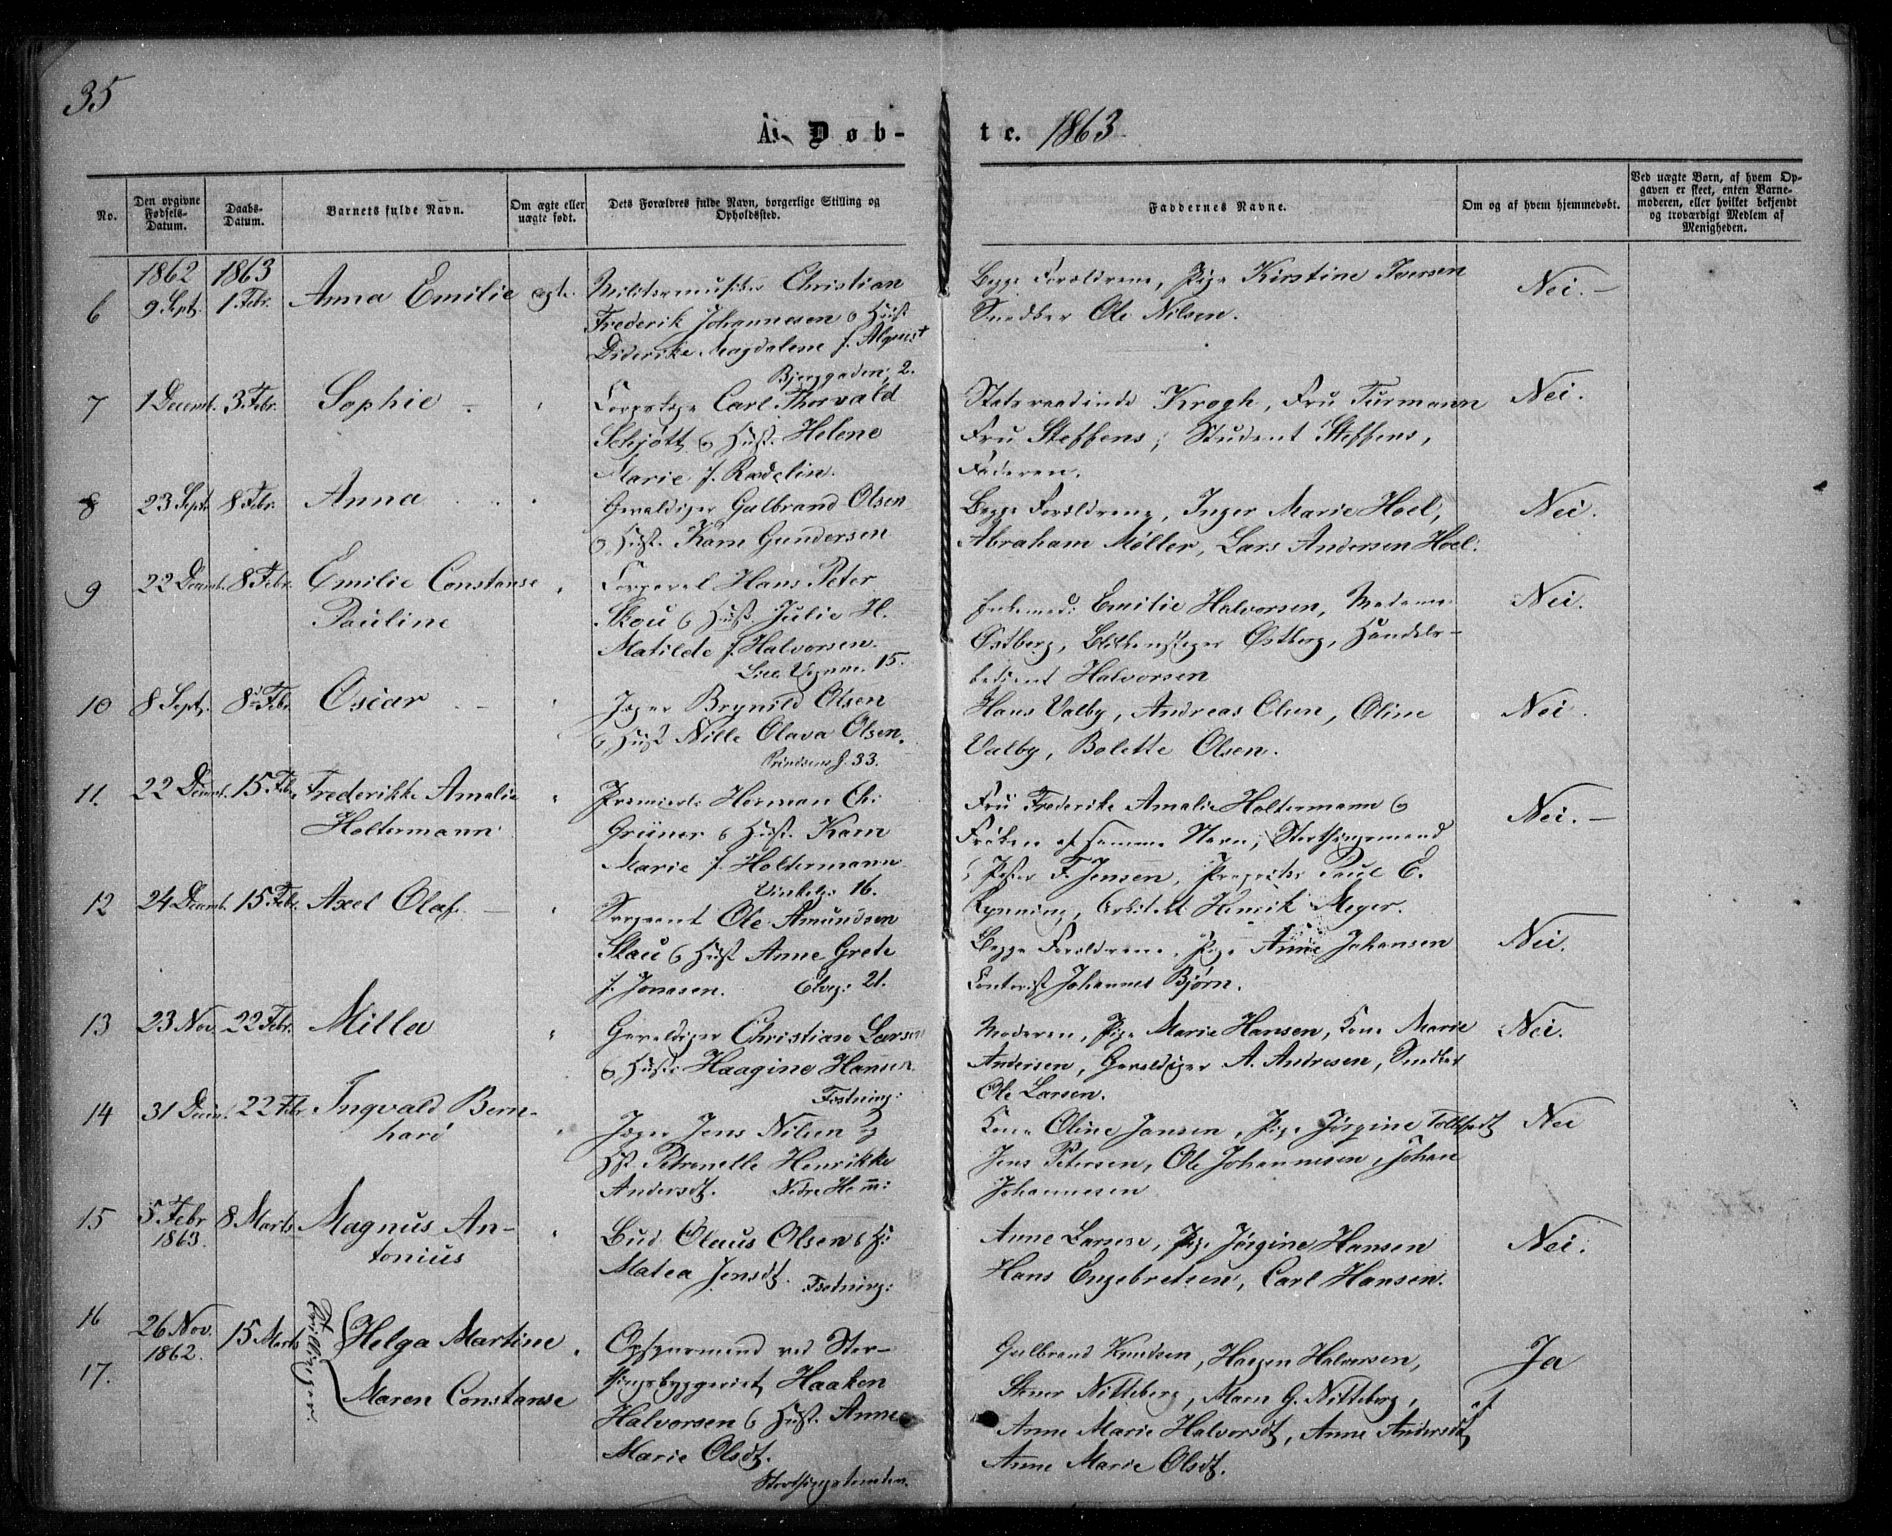 35
År Døb-te. 1863
No.
Den opgivne Fødsels-Datum.
Daabs-Datum.
Barnets fulde Navn.
Om ægte eller uægte født.
Dets Forældres fulde Navn, borgerlige Stilling og Opholdssted.
Faddernes Navne.
Om og af hvem hjemmedøbt.
Ved uægte Born, af hvem Opgaven er skeet, enten Barnemoderen, eller hvilket bekjendt og troværdigt Medlem af Menigheden.
1862 1863
6 9 Sept. 1 Febr. Anna Emilie ægte.
Christian
Frederik Johannesen & Hust
Diderike Magdalene f. Alqvist
Bjerggaden, 2.
Begge Forældrene, Pige Kirstine Iversen
Snedker Ole Nilsen.
Nei. –
7 1 Decemb. 3 Febr. Sophie –
Corpslæge Carl Thorvald
Schjøtt & Hust. Helene
Marie f.
Statsraadinde Krogh, Fru Furmann
Fru Steffens, Student Steffens,
Faderen.
Nei.
8 23 Sept 8 Febr. Anna
Gevaldiger Gulbrand Olsen
& Hust. Karn Gundersen
Begge Forældrene, Inger Marie Hoel,
Abraham Møller, Lars Andersen Hoel.
Nei.
9 22 Decemb. 8 Febr. Emilie Constanse
Pauline
Corporal Hans Peter
Skou & Hust. Julie H.
Matilde f. Halvorsen.
15.
Enkemad: Emilie Halvorsen, Madame
Østberg, Blikkenslager Østberg, Handels-
betjent Halvorsen
Nei.
10 8 Sept. 8 Febr. Oscar –
Jæger Brynild Olsen
& Hust Nille Olava Olsen.
Prindsens g. 33.
Hans Valby, Andreas Olsen, Oline
Valby, Bolette Olsen.
Nei.
11. 22 Decemb. 15 Febr. Frederikke Amalie
Holtermann
Premierlt. Herman Chr:
Grüner & Hust. Karn
Marie f. Holtermann
Vinkelg: 16.
Fru Frederike Amalie Holtermann &
Frøken af samme Navn, Storthingsmand
Peter F. Jensen, Paul E.
Rynning, Arkitekt Henrik Meyer.
Nei. –
12 24 Decemb. 15 Febr. Axel Olaf. –
Sergeant Ole Amundsen
Skau & Hust Anne Grete
f. Jonasen. Elveg: 21.
Begge Forældrene, Pige Anne Johansen
Contorist Johannes Bjørn.
Nei.
13 23 Nov. 22 Febr. Milla
Gevaldiger Christian Larsen
& Hust: Haagine Hansen
Fæstning:
Moderen, Pige Marie Hansen, Kone Marie
Andersen, Gevaldiger A. Andresen, Snedker
Ole Larsen.
Nei.
14 31 Decemb. 22 Febr. Ingvald Bern-
hard
Jæger Jens Nilsen &
Hst. Petronelle Henrikke
Andersdt.
Kone Oline Jansen, Pige Jørgine
Jens Petersen, Ole Johannesen, Johan
Johannesen
Nei
15 5 Febr 1863. 8 Marts Magnus An-
tonius
Bud Olaus Olsen & H:
Matea Jensdt. Fæstning:
Anne Larsen, Pige Jørgine Hansen
Hans Engebretsen, Carl Hansen.
Nei.
16 26 Nov. 1862. 15 Marts Tvillinger. Helga Martine
17. Maren Constanse
Opsynsmand ved Stor-
thingsbyggeriet Haaken
Halvorsen & Hust. Anne
Marie Olsdt.
Storthingstomten.
Gulbrand Knudsen, Haagen Halvorsen,
Stener Nitteberg, Maren G. Nitteberg,
Anne Marie Halvorsdt, Anne Andersdt,
Anne Marie Olsdt.
Ja
af